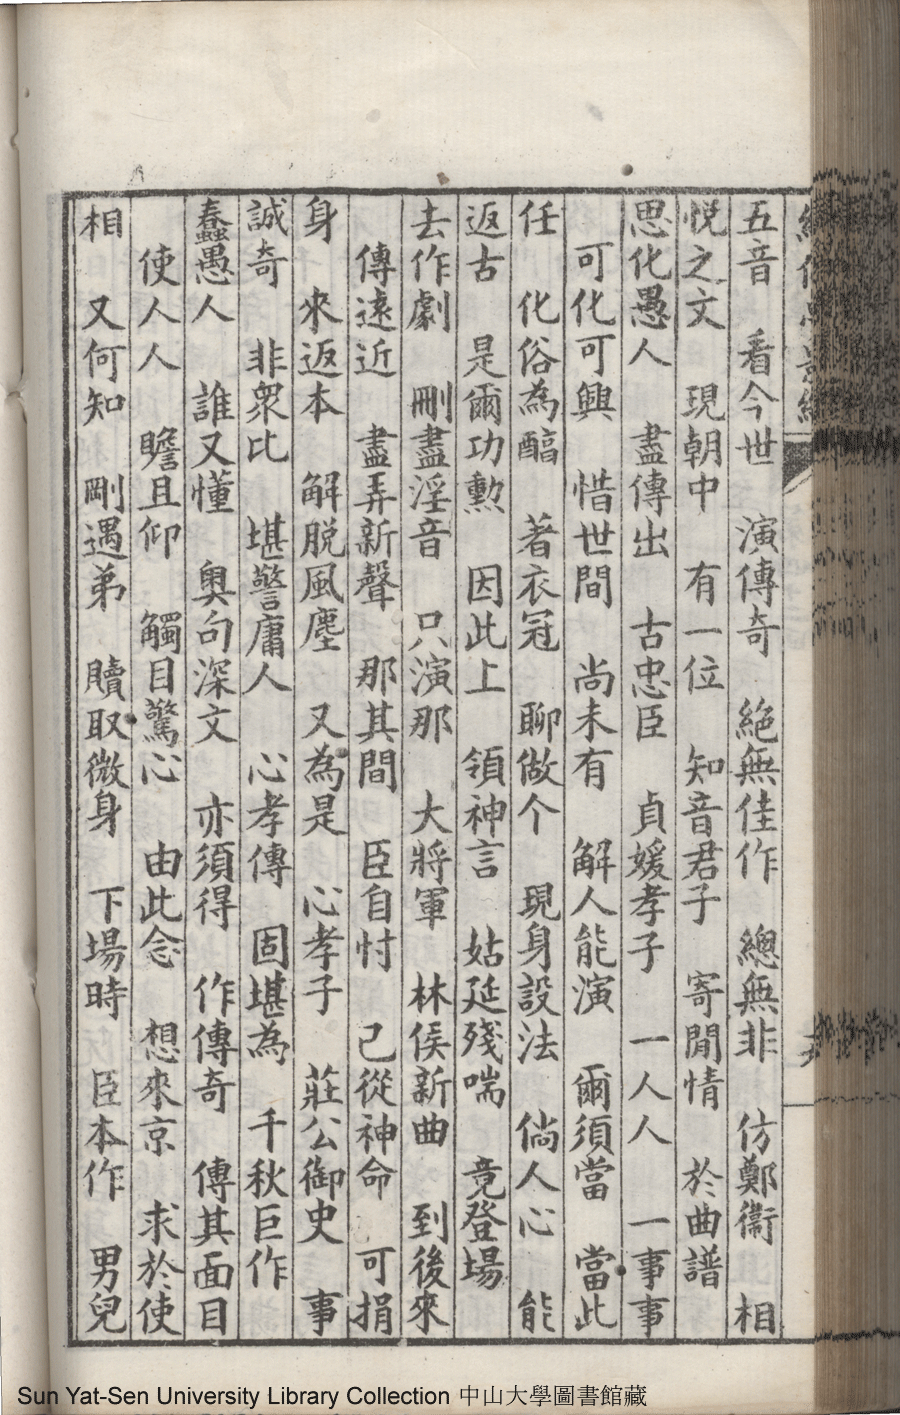 五音　看今世　演傳奇　絕無佳作　總無非　仿鄭衞　相
悅之文　現朝中　有一位　知音君子　寄閒情　於曲譜
思化愚人　盡傳出　古忠臣　貞媛孝子　一人人　一事事
可化可興　惜世間　尚未有　解人能演　爾須當　當此
任　化俗為醕　著衣冠　聊做个　現身設法　倘人心　能
返古　是爾功勳　因此上　領神言　姑延殘喘　竟登場
去作劇　刪盡淫音　只演那　大將軍　林侯新曲　到後來
傳遠近　盡弄新聲　那其間　臣自忖　己從神命　可捐
身　來返本　解脱風塵　又為是　心孝子　莊公御史　事
誠奇　非衆比　堪警庸人　心孝傳　固堪為　千秋巨作
蠢愚人　誰又懂　奥句深文　亦須得　作傳奇　傳其面目
使人人　瞻且仰　觸目驚心　由此念　想來京　求於使
相　又何知　剛遇弟　贖取微身　下場時　臣本作　男兒
Sun Yat-Sen University Library Collection 中山大學圖書館藏